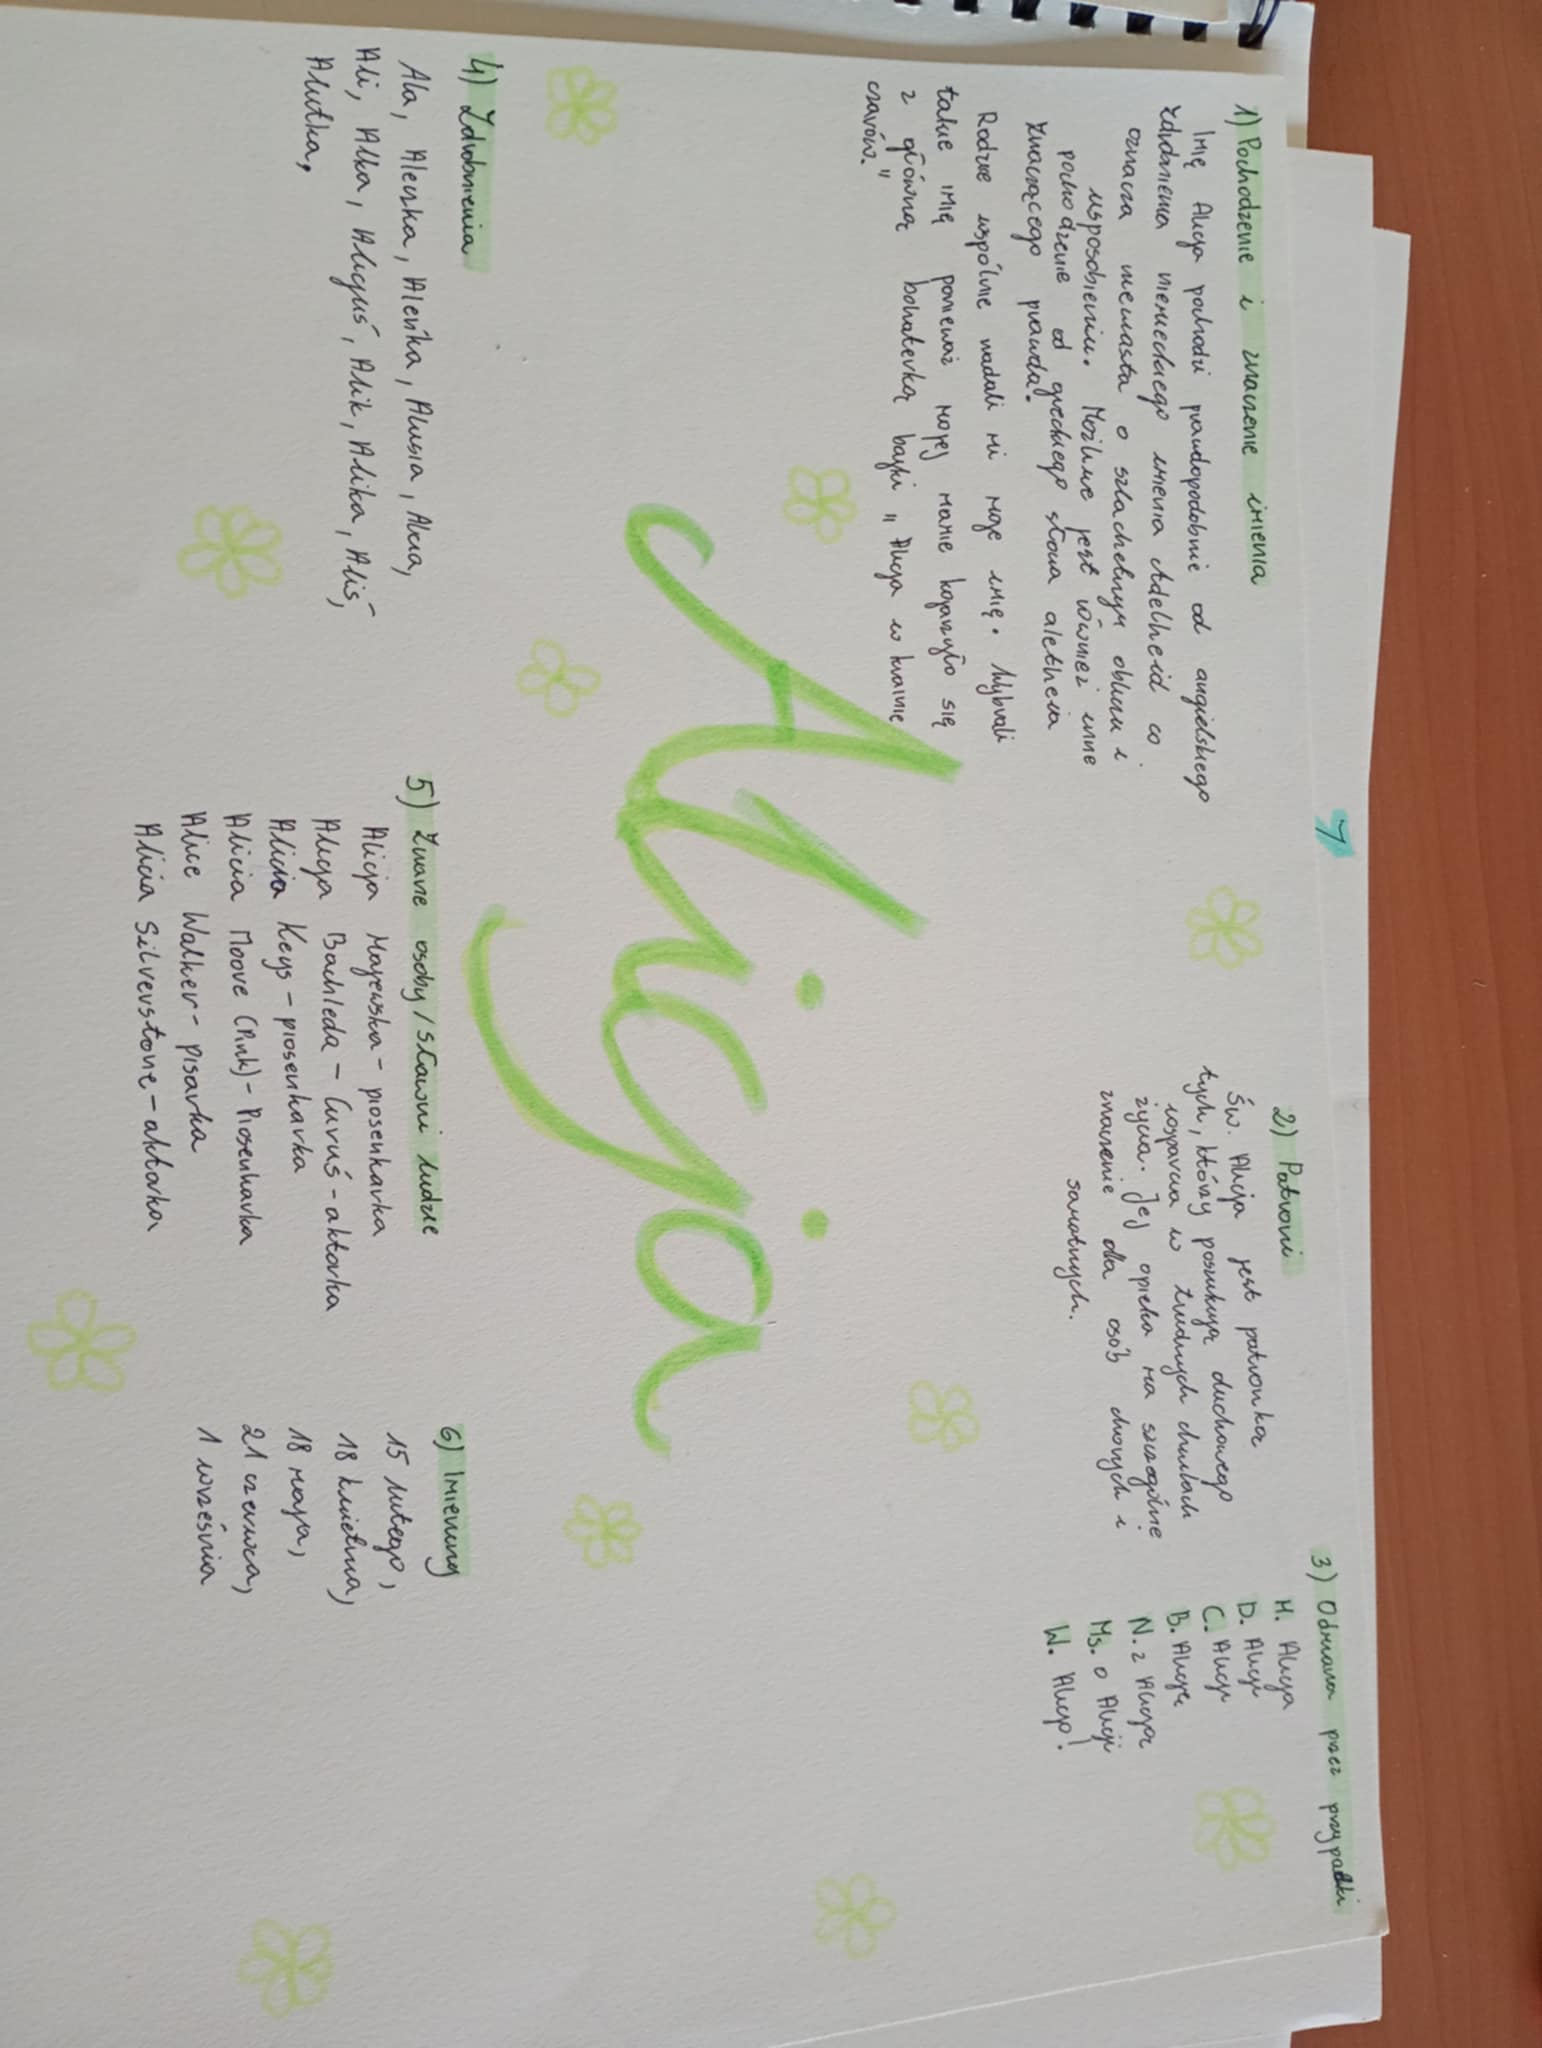 7
1) Pochodzenie i znaczenie imienia
Imię Alicja pochodzi prawdopodobnie od angielskiego
zdrobnienia niemieckiego imienia Adelheid co
oznacza niewiasta o szlachetnym obliczu i
usposobieniu. Możliwe jest również inne
pochodzenie od greckiego słowa aletheia
znaczącego prawda.
Rodzice wspólnie nadali mi moje imię. Wybrali
takie imię ponieważ mojej mamie kojarzyło się
z główną bohaterką bajki "Alicja w krainie
czarów."
2) Patroni
Św. Alicja jest patronką
tych, którzy poszukują duchowego
wsparcia w trudnych chwilach
życia. Jej opieka ma szczególne
znaczenie dla osób chorych i
samotnych.
3) Odmiana przez przypadki
M. Alicja
D. Alicji
C. Alicji
B. Alicję
N. z Alicją
Ms. o Alicji
W. Alicjo!
Alicja
4) Zdrobnienia
Ala, Aleczka, Aleńka, Alusia, Alcia,
Ali, Alka, Alicjuś, Alik, Alika, Aliś,
Alutka,
5) Znane osoby / sławni ludzie
Alicja Majewska - piosenkarka
Alicja Bachleda - Curuś - aktorka
Alicia Keys - piosenkarka
Alicia Moore (Pink) - Piosenkarka
Alice Walker - pisarka
Alicia Silverstone - aktorka
6) Imieniny
15 lutego,
18 kwietnia,
18 maja,
21 czerwca,
1 września